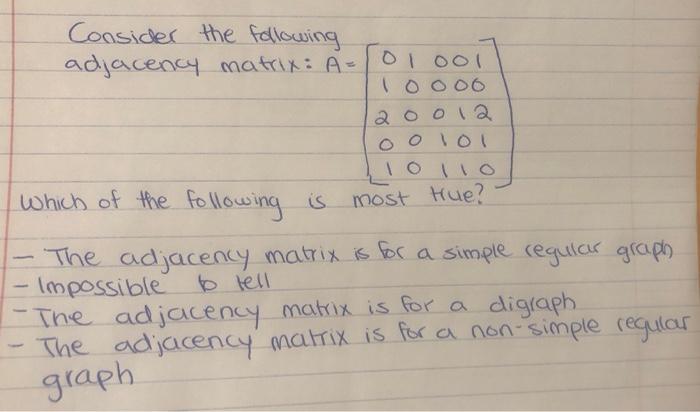 Consider the following
adjacency matrix: A= 0 1 0 0 1
1 0 0 0 0
2 0 0 1 2
0 0 1 0 1
1 0 1 1 0
Which of the following is most true?
- The adjacency matrix is for a simple regular graph
- Impossible to tell
- The adjacency matrix is for a digraph
- The adjacency matrix is for a non-simple regular
graph